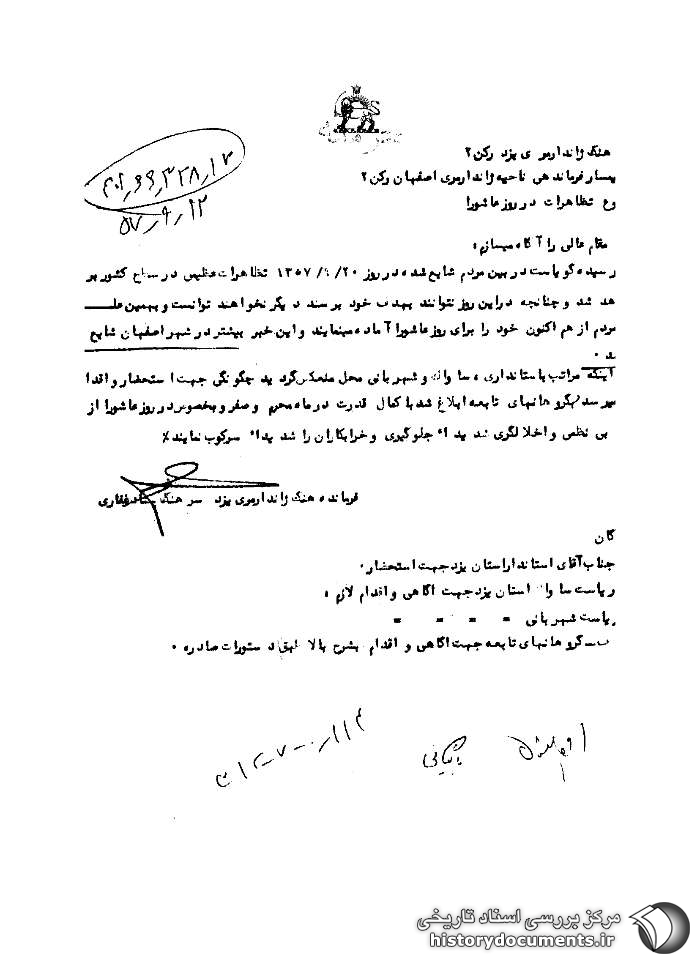 ۲۰۱ر۶۶ر۳۲۸ر۱۲
۵۷ر۹ر۱۲
هنگ ژاندارمری یزد رکن ۲
بیسار فرماندهی ناحیه ژاندارمری اصفهان رکن ۲
وع تظاهرات در روز عاشورا
مقام عالی را آگاه میسازم:
رسیده گویاست در بین مردم شایع شده در روز ۲۰ /۹/ ۱۳۵۷ تظاهرات عظیمی در سطح کشور بر
هد شد و چنانچه در این روز نتوانند بهدف خود برسند دیگر نخواهند توانست و بهمین علـــ
مردم از هم اکنون خود را برای روز عاشورا آماده مینمایند و این خبر بیشتر در شهر اصفهان شایع
د ۰
اینکه مراتب باستانداری، ساواک و شهربانی محل منعکس گردید چگونگی جهت استحضار و اقدا
میرسد بگروهانهای تابعه ابلاغ شد با کمال قدرت در ماه محرم و صفر و بخصوص در روز عاشورا از
بی نظمی و اخلالگری شدیداً جلوگیری و خرابکاران را شدیداً سرکوب نمایند٪
فرمانده هنگ ژاندارمری یزد سرهنگ غفاری
گان
جناب آقای استاندار استان یزد جهت استحضار۰
ریاست ساواک استان یزد جهت آگاهی و اقدام لازم ۰
ریاست شهربانی = = = =
گروهانهای تابعه جهت آگاهی و اقدام بشرح بالا طبق دستورات صادره ۰
بایگانی
مرکز بررسی اسناد تاریخی
historydocuments.ir